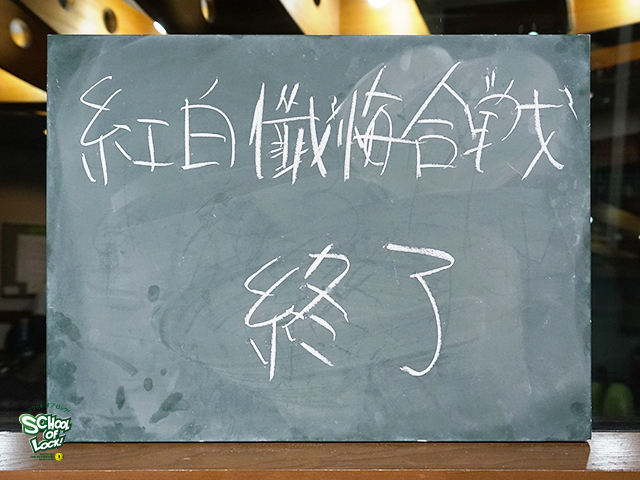 紅白懺悔合戦
終了
SCHOOL
OF
LOCK!